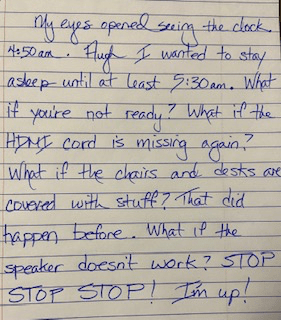 My eyes opened seeing the clock
4:50am. Hugh I wanted to stay
asleep until at least 5:30am. What
if you're not ready? What if the
HDMI cord is missing again?
What if the chairs and desks are
covered with stuff? That did
happen before. What if the
speaker doesn't work? STOP
STOP STOP! I'm up!